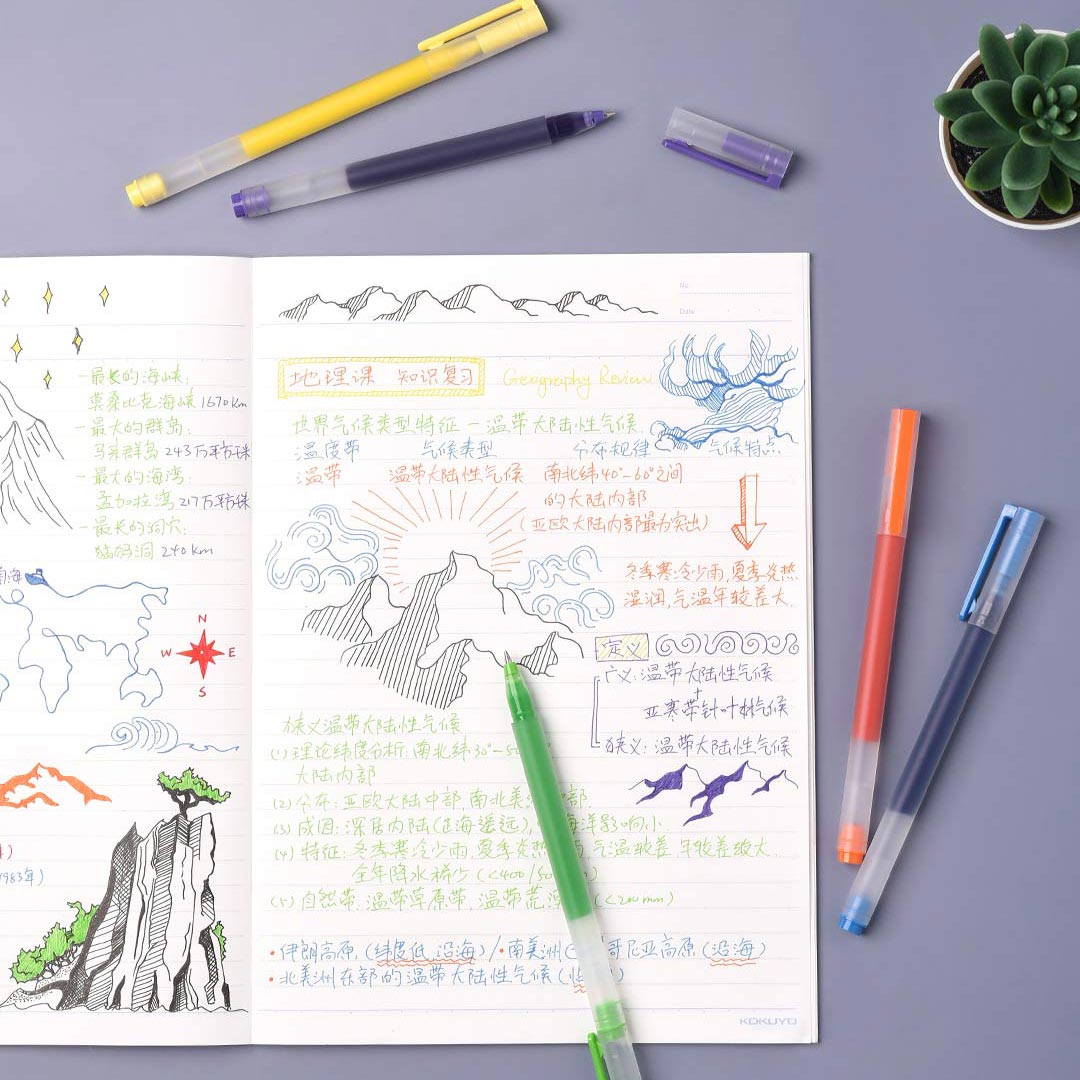 -最长的海峡:
莫桑比克海峡 1670km
-最大的群岛:
马来群岛 243万平方km
-最大的海湾:
孟加拉湾 217万平方km
-最长的洞穴:
240km
南海
N
W E
S
1983年)
No.
Date
地理课 知识复习 Geography Review
世界气候类型特征-温带大陆性气候
温度带 气候类型 分布规律 气候特点
温带 温带大陆性气候 南北纬40°-60°之间
的大陆内部
(亚欧大陆内部最为突出)
冬季寒冷少雨,夏季炎热
湿润,气温年较差大.
定义
广义:温带大陆性气候
+
亚寒带针叶林气候
狭义:温带大陆性气候
狭义温带大陆性气候
(1)理论纬度分析:南北纬30°-5
大陆内部
(2)分布:亚欧大陆中部,南北美 部.
(3)成因:深居内陆(距海遥远), 海洋影响小.
(4)特征:冬季寒冷少雨,夏季炎热 雨,气温较差,年较差较大.
全年降水稀少(<400/50 )
(5)自然带:温带草原带,温带荒 (<200mm)
·伊朗高原,(纬度低,沿海)/·南美洲 哥尼亚高原(沿海)
·北美洲东部的温带大陆性气候(
KOKUYO